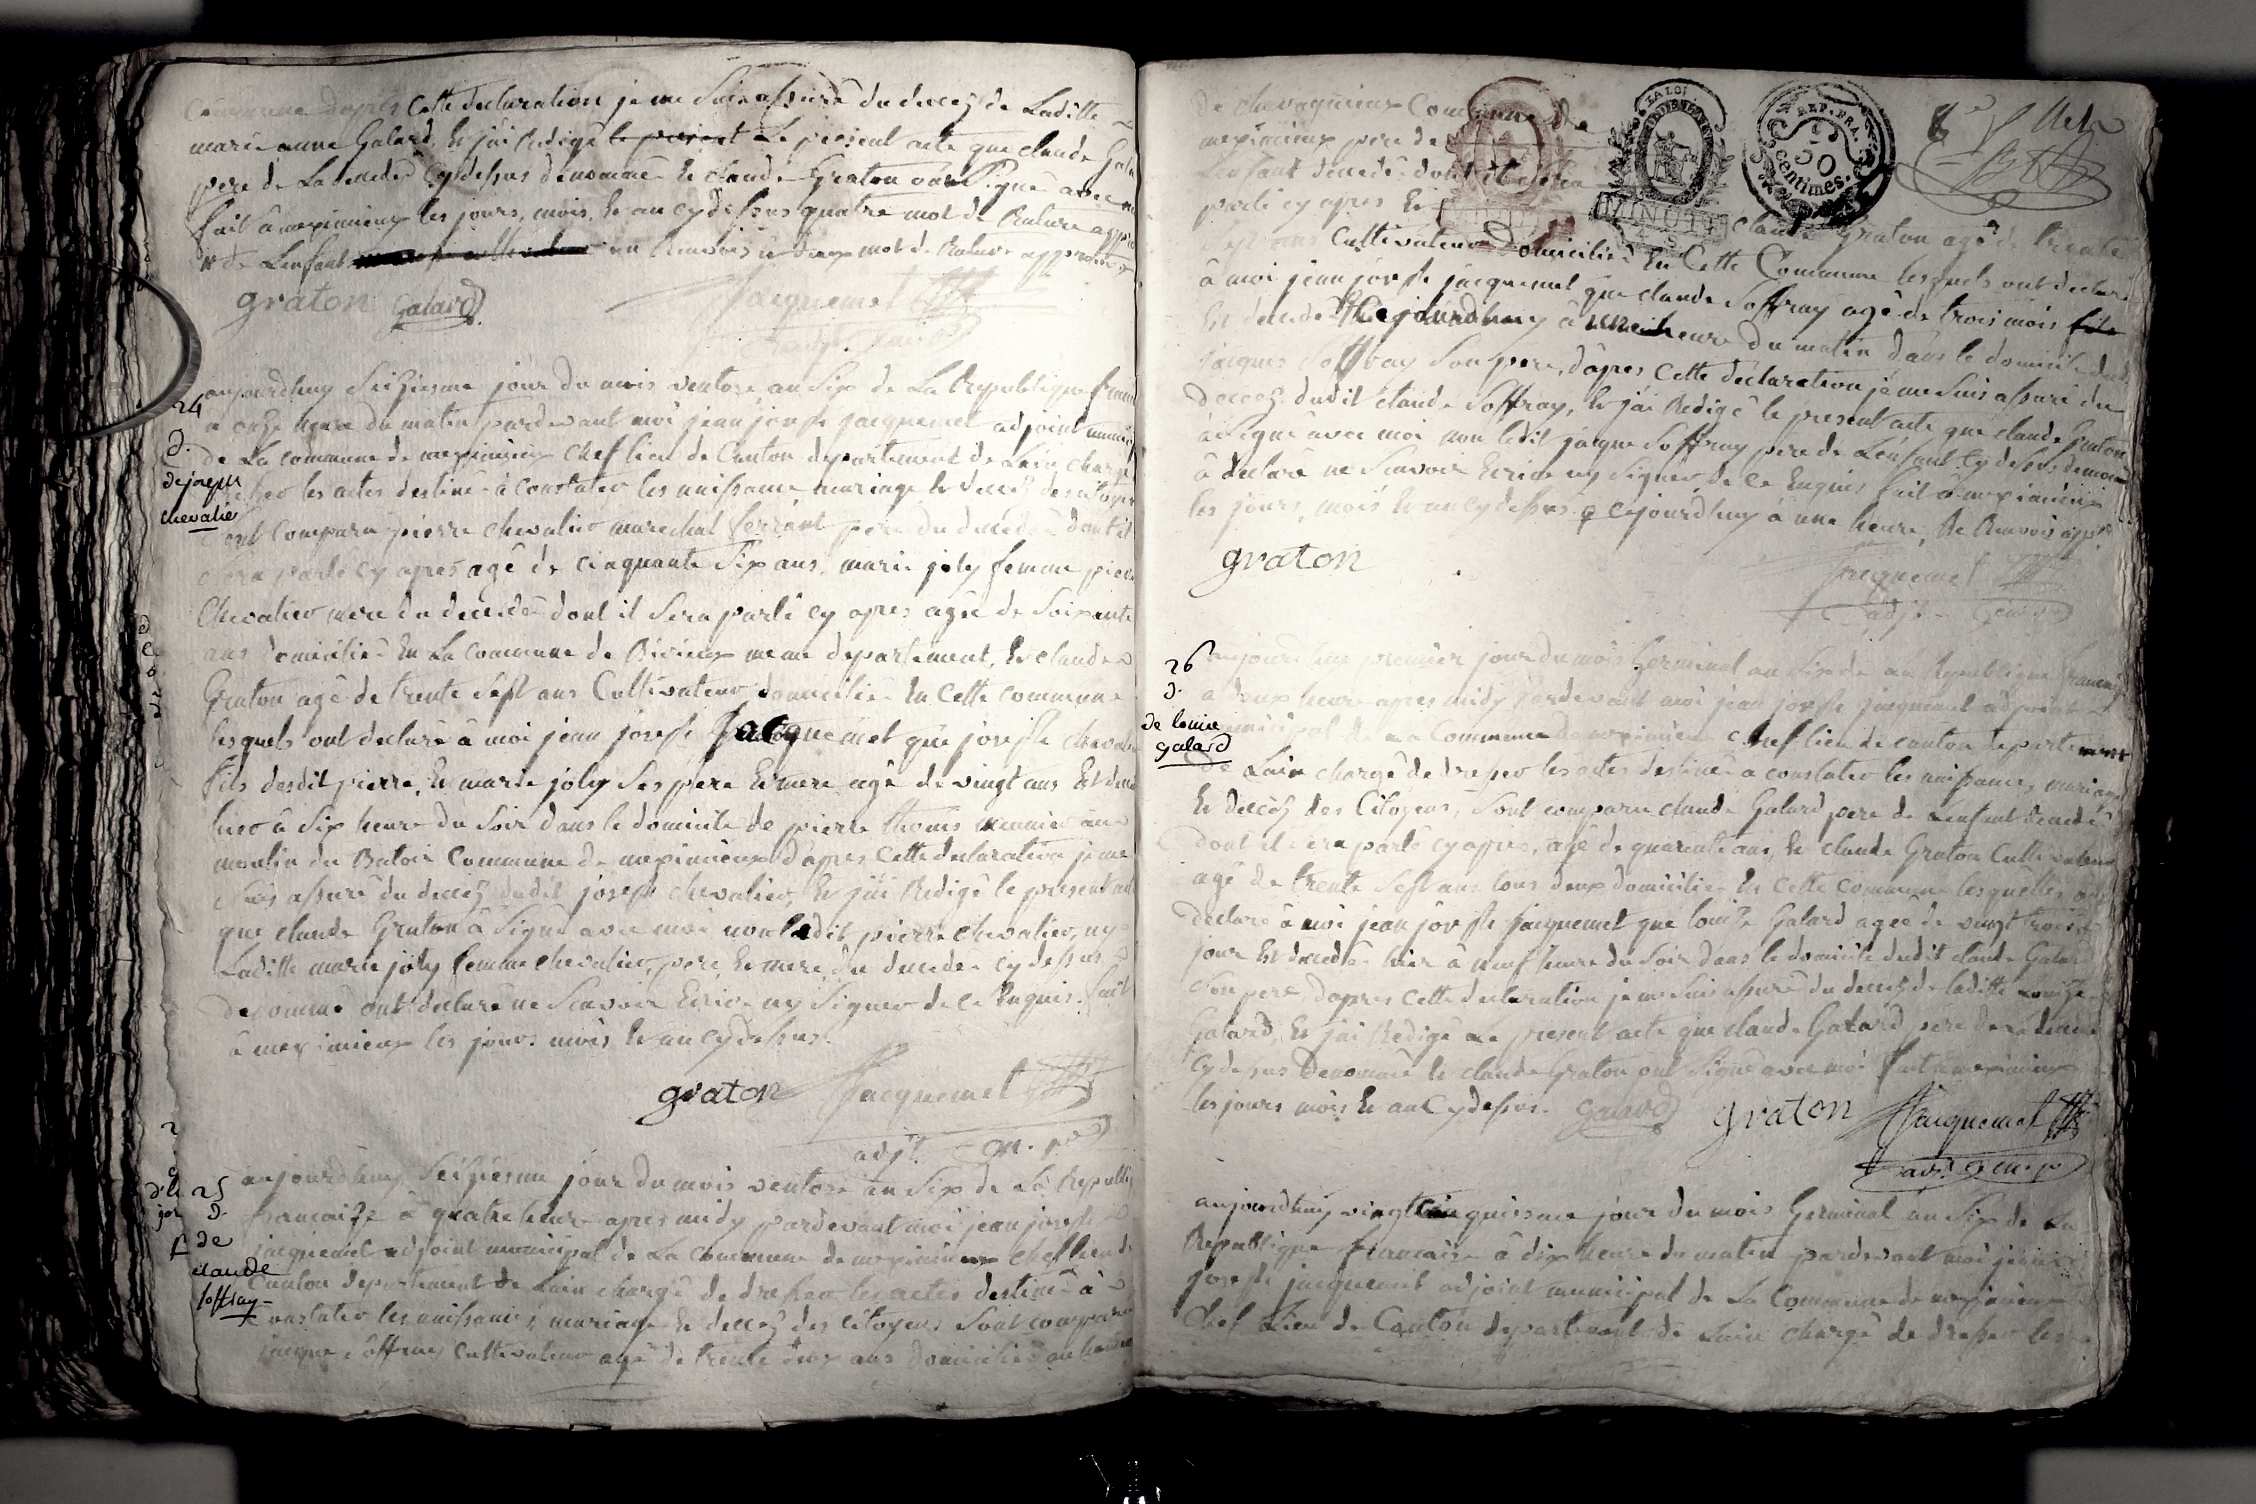 Commune d'apres cette declaration je me suis assuré du decez de Laditte
marie anne Galard, Et j'ai Redigé le present Le present acte que claude Gala
pere de La decedée Cydessus denommé Et claude Graton ont Signé avec moi
fait à meximieux les jours, mois, Et an cydessus quatre mot de Rature approu
de Lenfant un Renvois et deux mot de Rature approuvé
graton Galard Jacquemet
24
D.
de joseph
chevalier
aujourdhuy Seiziesme jour du mois ventose an Six de La Republique franc
a onze heure du matin pardevant moi jean joseph jacquemet adjoint municip
de La commune de meximieux Chef lieu de Canton departement de Lain chargé
dresser les actes destiné à constater les naissance, mariage Et decez des citoyens
Sont Comparu pierre chevalier marechal ferrant pere du decedé dont il
sera parlé cy apres agé de cinquante Six ans, marie joly femme pierre
Chevalier mere du decedé dont il Sera parlé cy apres agée de Soixante
ans domicilié En La commune de meme departement, Et claude
Graton agé de trente Sept ans Cultivateur domicilié En Cette commune
lesquels ont declaré à moi jean joseph Jacquemet que joseph chevalier
fils desdit pierre, Et marie joly Ses pere Et mere agé de vingt ans Est decedé
hier à Six heure du Soir dans le domicile de pierre thomas meunier au
moulin du Batoir Commune de meximieux d'apres Cette declaration je me
suis assuré du decez dudit joseph chevalier, Et j'ai Redigé le present acte
que claude Graton à Signé avec moi non ledit pierre chevalier, ny
Laditte marie joly femme chevalier, pere, Et mere, du decedé cydessus
denommé ont declaré ne Scavoir Ecrire ny Signer de ce Enquis. fait
à meximieux les jours mois Et an Cydessus.
graton Jacquemet
adjt.
25
D.
de
claude
soffray
aujourdhuy Seiziesme jour du mois ventose an Six de La Republique
francaize à quatre heure apres midy pardevant moi jean joseph
jacquemet adjoint municipal de La commune de meximieux chef lieu de
Canton departement de Lain chargé de dresser les actes destiné à
Constater les naissances, mariage Et decez des citoyens Sont comparu
jacque Soffray Cultivateur agé de trente deux ans domicilié au hameau
de chavagnieux Commune de
meximieux pere de
Lenfant decedé dont il sera
parlé cy apres Et
Claude Graton agé de trente
Sept ans Cultivateur Domicilié En Cette Commune lesquels ont declaré
à moi jean joseph jacquemet que claude Soffray agé de trois mois fils
Est decedé cejourdhuy à une heure du matin dans le domicile dudit
jacques Soffray Son pere, d'apres Cette declaration je me Suis assuré du
decez dudit claude Soffray, Et j'ai Redigé le present acte que claude Graton
à Signé avec moi non ledit jacque Soffray pere de Lenfant Cydessus denommé
à declaré ne Scavoir Ecrire ny Signer de Ce Enquis fait à meximieux
les jours, mois Et an cydessus. cejourdhuy à une heure, de Renvois app.
graton
Jacquemet
adjt.
LA LOI
REP. FRA.
50
centimes.
MINUTE
26
D.
de louise
galard
aujourdhuy premier jour du mois Germinal an Six de La Republique francaize
a deux heure apres midy pardevant moi jean joseph jacquemet adjoint
municipal de La Commune de meximieux chef lieu de canton departement
de Lain chargé de dresser les actes destiné a constater les naissance, mariage
Et decez des Citoyens, Sont comparu claude Galard pere de Lenfant decedé
dont il sera parlé cy apres, agé de quarante ans, Et claude Graton Cultivateur
agé de trente Sept ans tous deux domicilié En Cette commune lesquelles ont
declaré à moi jean joseph jacquemet que louize Galard agée de vingt trois
jour Est decedée hier à neuf heure du Soir Dans le domicile dudit claude Galard
Son pere, d'apres Cette declaration je me Suis assuré du decez de laditte Louize
Galard, Et j'ai Redigé Le present acte que claude Galard pere de La decedée
Cydessus Denommé Et claude Graton ont Signé avec moi fait a meximieux
les jours mois Et an Cydessus. Galard graton Jacquemet
adjt.
aujourdhuy vingt cinquiesme jour du mois Germinal an Six de La
Republique francaise à dix heure du matin pardevant moi jean
joseph jacquemet adjoint municipal de La Commune de meximieux
Chef Lieu de Canton departement de Lain chargé de dresser les